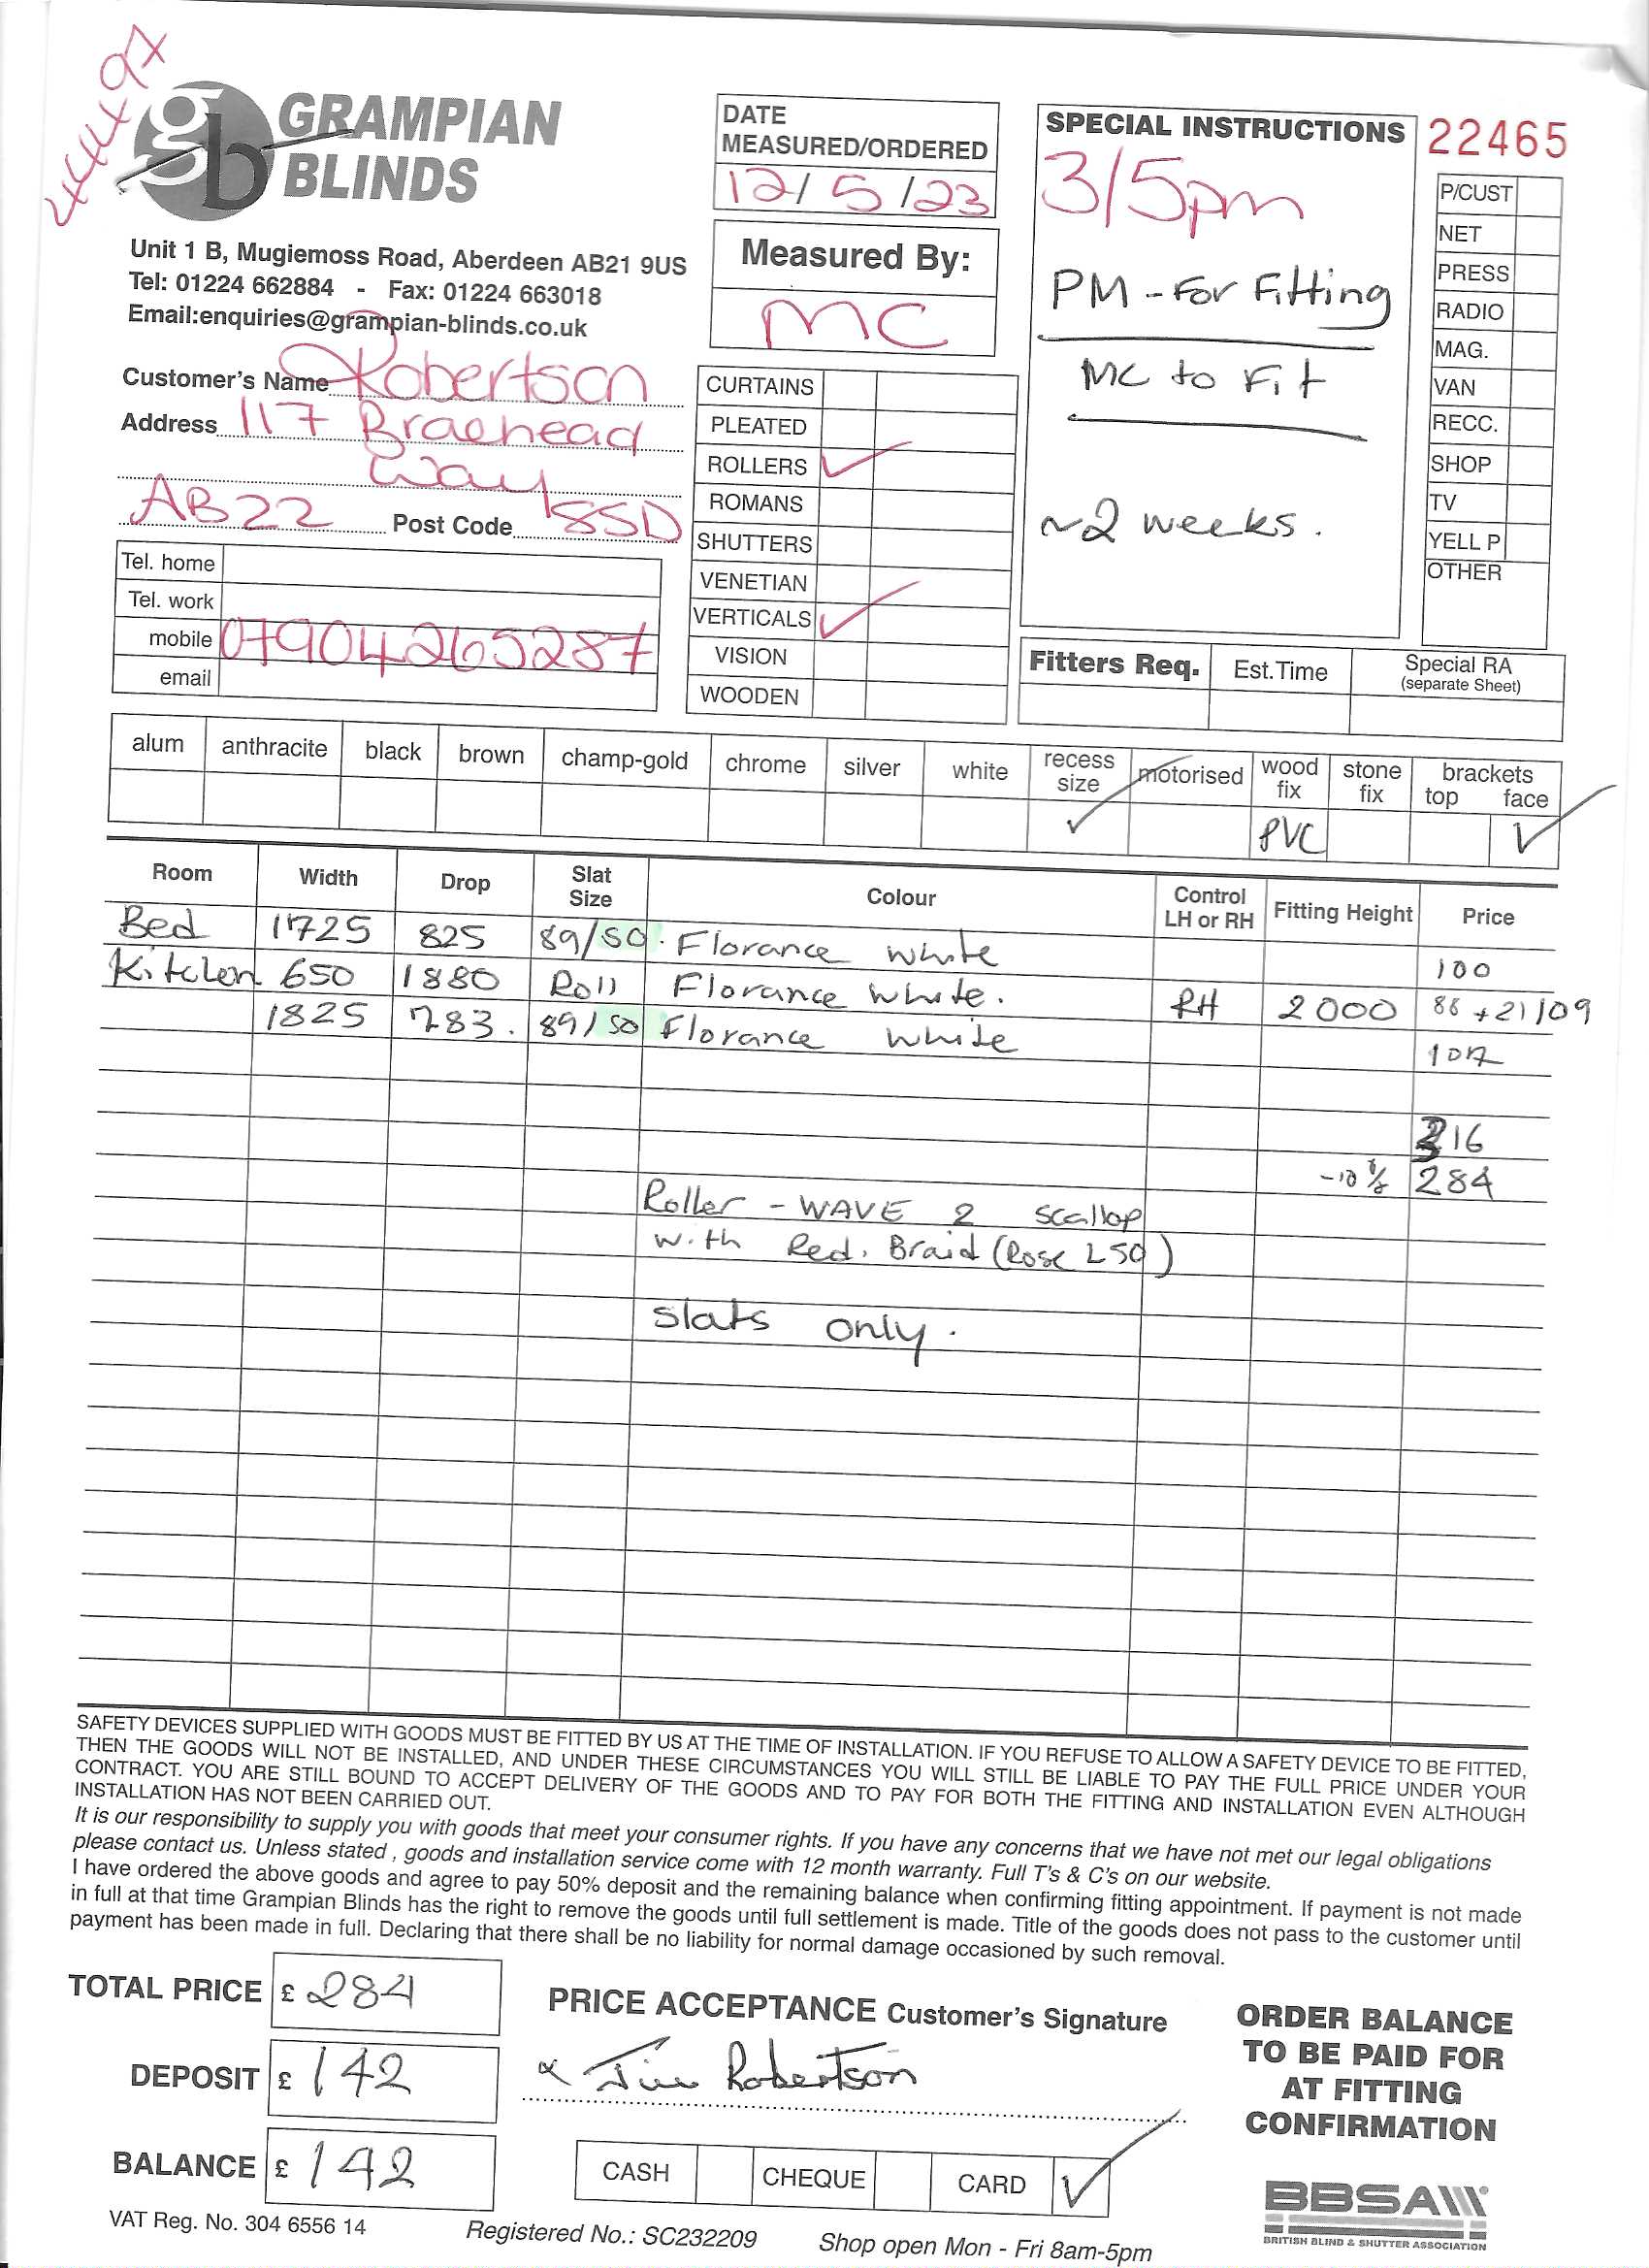 44497
gb GRAMPIAN
BLINDS
Unit 1 B, Mugiemoss Road, Aberdeen AB21 9US
Tel: 01224 662884 - Fax: 01224 663018
Email:enquiries@grampian-blinds.co.uk
DATE
MEASURED/ORDERED
12/5/23
Measured By:
MC
SPECIAL INSTRUCTIONS
3/5pm
PM - For Fitting
MC to Fit
~2 weeks.
22465
P/CUST
NET
PRESS
RADIO
MAG.
VAN
RECC.
SHOP
TV
YELL P
OTHER
Customer's Name Robertson
Address 117 Braehead
Way
AB22 Post Code 8SD
Tel. home
Tel. work
mobile 07904265287
email
CURTAINS
PLEATED
ROLLERS ✓
ROMANS
SHUTTERS
VENETIAN
VERTICALS ✓
VISION
WOODEN
Fitters Req. Est.Time Special RA
(separate Sheet)
alum anthracite black brown champ-gold chrome silver white recess size motorised wood fix stone fix brackets top face
✓ PVC ✓
Room Width Drop Slat Size Colour Control LH or RH Fitting Height Price
Bed 1725 825 89/50. Florance white 100
Kitchen 650 1880 Roll Florance white. RH 2000 88 +21/109
1825 783. 89/50 Florance white 107
316
-10% 284
Roller - WAVE 2 scallop
with Red. Braid (Rose L50)
slats only.
SAFETY DEVICES SUPPLIED WITH GOODS MUST BE FITTED BY US AT THE TIME OF INSTALLATION. IF YOU REFUSE TO ALLOW A SAFETY DEVICE TO BE FITTED,
THEN THE GOODS WILL NOT BE INSTALLED, AND UNDER THESE CIRCUMSTANCES YOU WILL STILL BE LIABLE TO PAY THE FULL PRICE UNDER YOUR
CONTRACT. YOU ARE STILL BOUND TO ACCEPT DELIVERY OF THE GOODS AND TO PAY FOR BOTH THE FITTING AND INSTALLATION EVEN ALTHOUGH
INSTALLATION HAS NOT BEEN CARRIED OUT.
It is our responsibility to supply you with goods that meet your consumer rights. If you have any concerns that we have not met our legal obligations
please contact us. Unless stated , goods and installation service come with 12 month warranty. Full T's & C's on our website.
I have ordered the above goods and agree to pay 50% deposit and the remaining balance when confirming fitting appointment. If payment is not made
in full at that time Grampian Blinds has the right to remove the goods until full settlement is made. Title of the goods does not pass to the customer until
payment has been made in full. Declaring that there shall be no liability for normal damage occasioned by such removal.
TOTAL PRICE £ 284
DEPOSIT £ 142
BALANCE £ 142
PRICE ACCEPTANCE Customer's Signature
x Jim Robertson
CASH CHEQUE CARD ✓
ORDER BALANCE
TO BE PAID FOR
AT FITTING
CONFIRMATION
BBSA
BRITISH BLIND & SHUTTER ASSOCIATION
VAT Reg. No. 304 6556 14 Registered No.: SC232209 Shop open Mon - Fri 8am-5pm